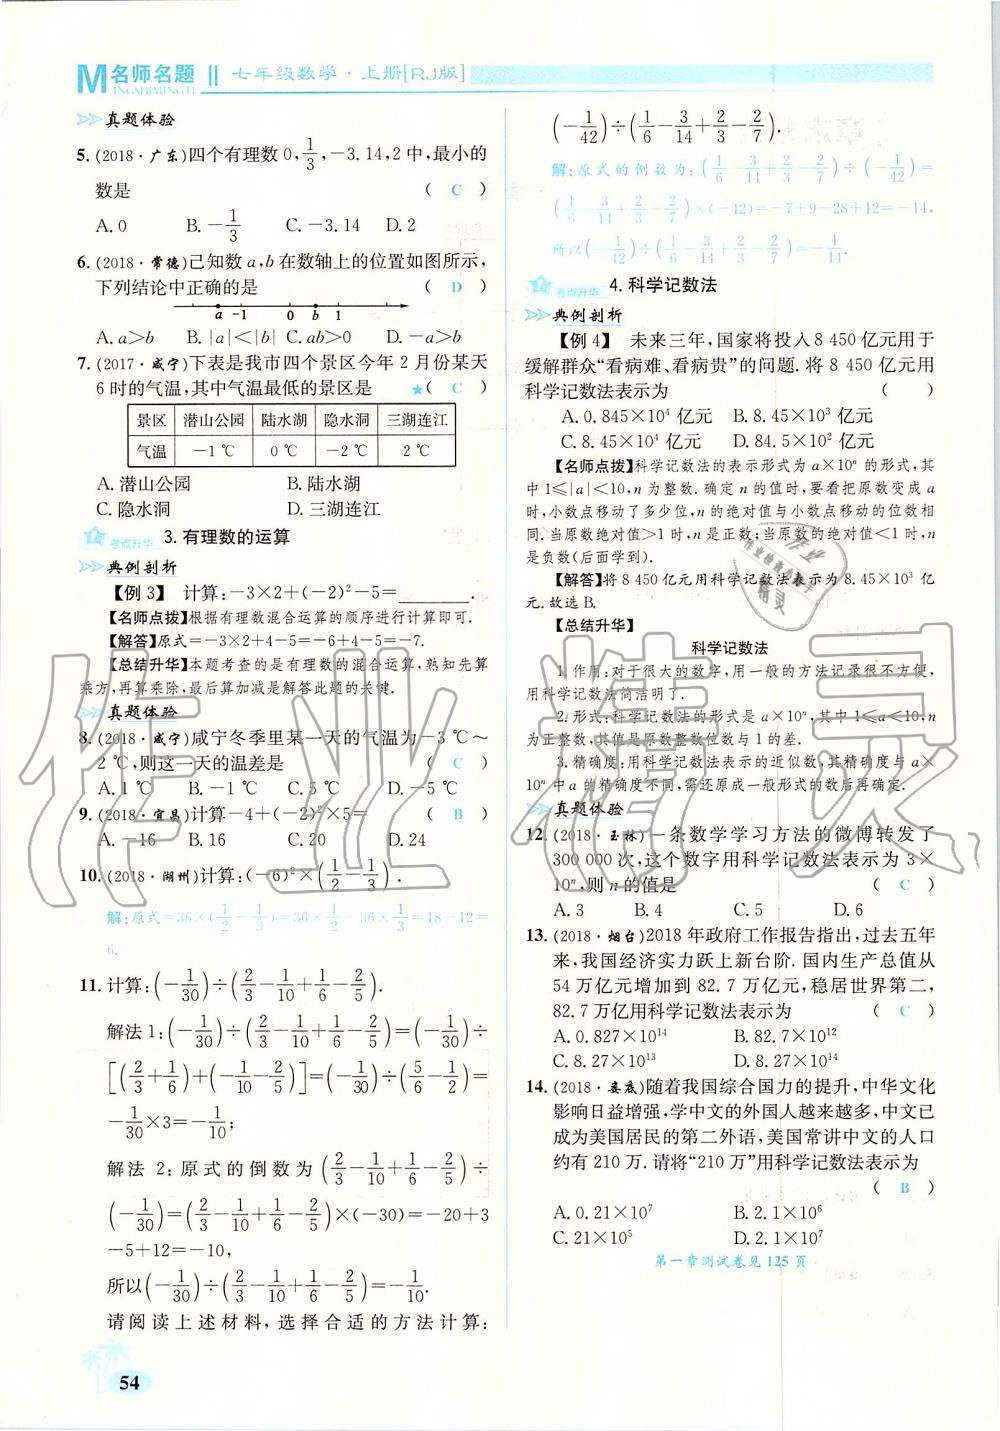 M名师名题 ‖ 七年级数学·上册[RJ版]
INGSHIMINGTI
真题体验
5.(2018·广东)四个有理数0,1/3,-3.14,2中,最小的
数是 ( C )
A.0 B.-1/3 C.-3.14 D.2
6.(2018·常德)已知数a,b在数轴上的位置如图所示,
下列结论中正确的是 ( D )
a -1 0 b 1
A.a>b B.|a|<|b| C.ab>0 D.-a>b
7.(2017·咸宁)下表是我市四个景区今年2月份某天
6时的气温,其中气温最低的景区是 ★( C )
景区 潜山公园 陆水湖 隐水洞 三湖连江
气温 -1 ℃ 0 ℃ -2 ℃ 2 ℃
A.潜山公园 B.陆水湖
C.隐水洞 D.三湖连江
考点升华 3.有理数的运算
典例剖析
【例3】 计算:-3×2+(-2)²-5=______.
【名师点拨】根据有理数混合运算的顺序进行计算即可.
【解答】原式=-3×2+4-5=-6+4-5=-7.
【总结升华】本题考查的是有理数的混合运算,熟知先算
乘方,再算乘除,最后算加减是解答此题的关键.
真题体验
8.(2018·咸宁)咸宁冬季里某一天的气温为-3 ℃~
2 ℃,则这一天的温差是 ( C )
A.1 ℃ B.-1 ℃ C.5 ℃ D.-5 ℃
9.(2018·宜昌)计算-4+(-2)²×5= ( B )
A.-16 B.16 C.20 D.24
10.(2018·湖州)计算:(-6)²×(1/2-1/3).
解:原式=36×(1/2-1/3)=36×1/2-36×1/3=18-12=
6.
11.计算:(-1/30)÷(2/3-1/10+1/6-2/5).
解法1:(-1/30)÷(2/3-1/10+1/6-2/5)=(-1/30)÷
[(2/3+1/6)+(-1/10-2/5)]=(-1/30)÷(5/6-1/2)=
-1/30×3=-1/10;
解法2:原式的倒数为(2/3-1/10+1/6-2/5)÷
(-1/30)=(2/3-1/10+1/6-2/5)×(-30)=-20+3
-5+12=-10,
所以(-1/30)÷(2/3-1/10+1/6-2/5)=-1/10.
请阅读上述材料,选择合适的方法计算:
(-1/42)÷(1/6-3/14+2/3-2/7).
解:原式的倒数为:(1/6-3/14+2/3-2/7)÷(-1/42)=
(1/6-3/14+2/3-2/7)×(-42)=-7+9-28+12=-14,
所以(-1/42)÷(1/6-3/14+2/3-2/7)=-1/14.
考点升华 4.科学记数法
典例剖析
【例4】 未来三年,国家将投入8 450亿元用于
缓解群众“看病难、看病贵”的问题.将8 450亿元用
科学记数法表示为 ( )
A.0.845×10⁴亿元 B.8.45×10³亿元
C.8.45×10⁴亿元 D.84.5×10²亿元
【名师点拨】科学记数法的表示形式为a×10ⁿ的形式,其
中1≤|a|<10,n为整数.确定n的值时,要看把原数变成a
时,小数点移动了多少位,n的绝对值与小数点移动的位数相
同.当原数绝对值>1时,n是正数;当原数的绝对值<1时,n
是负数(后面学到).
【解答】将8 450亿元用科学记数法表示为8.45×10³亿
元.故选B.
【总结升华】
科学记数法
1.作用:对于很大的数字,用一般的方法记录很不方便,
用科学记数法简洁明了.
2.形式:科学记数法的形式是a×10ⁿ,其中1≤a<10,n
为正整数,其值是原数整数位数与1的差.
3.精确度:用科学记数法表示的近似数,其精确度与a×
10ⁿ中a的精确度不同,需还原成一般形式的数后再确定.
真题体验
12.(2018·玉林)一条数学学习方法的微博转发了
300 000次,这个数字用科学记数法表示为3×
10ⁿ,则n的值是 ( C )
A.3 B.4 C.5 D.6
13.(2018·烟台)2018年政府工作报告指出,过去五年
来,我国经济实力跃上新台阶.国内生产总值从
54万亿元增加到82.7万亿元,稳居世界第二,
82.7万亿用科学记数法表示为 ( C )
A.0.827×10¹⁴ B.82.7×10¹²
C.8.27×10¹³ D.8.27×10¹⁴
14.(2018·娄底)随着我国综合国力的提升,中华文化
影响日益增强,学中文的外国人越来越多,中文已
成为美国居民的第二外语,美国常讲中文的人口
约有210万.请将“210万”用科学记数法表示为
( B )
A.0.21×10⁷ B.2.1×10⁶
C.21×10⁵ D.2.1×10⁷
第一章测试卷见125页
54
作业精灵